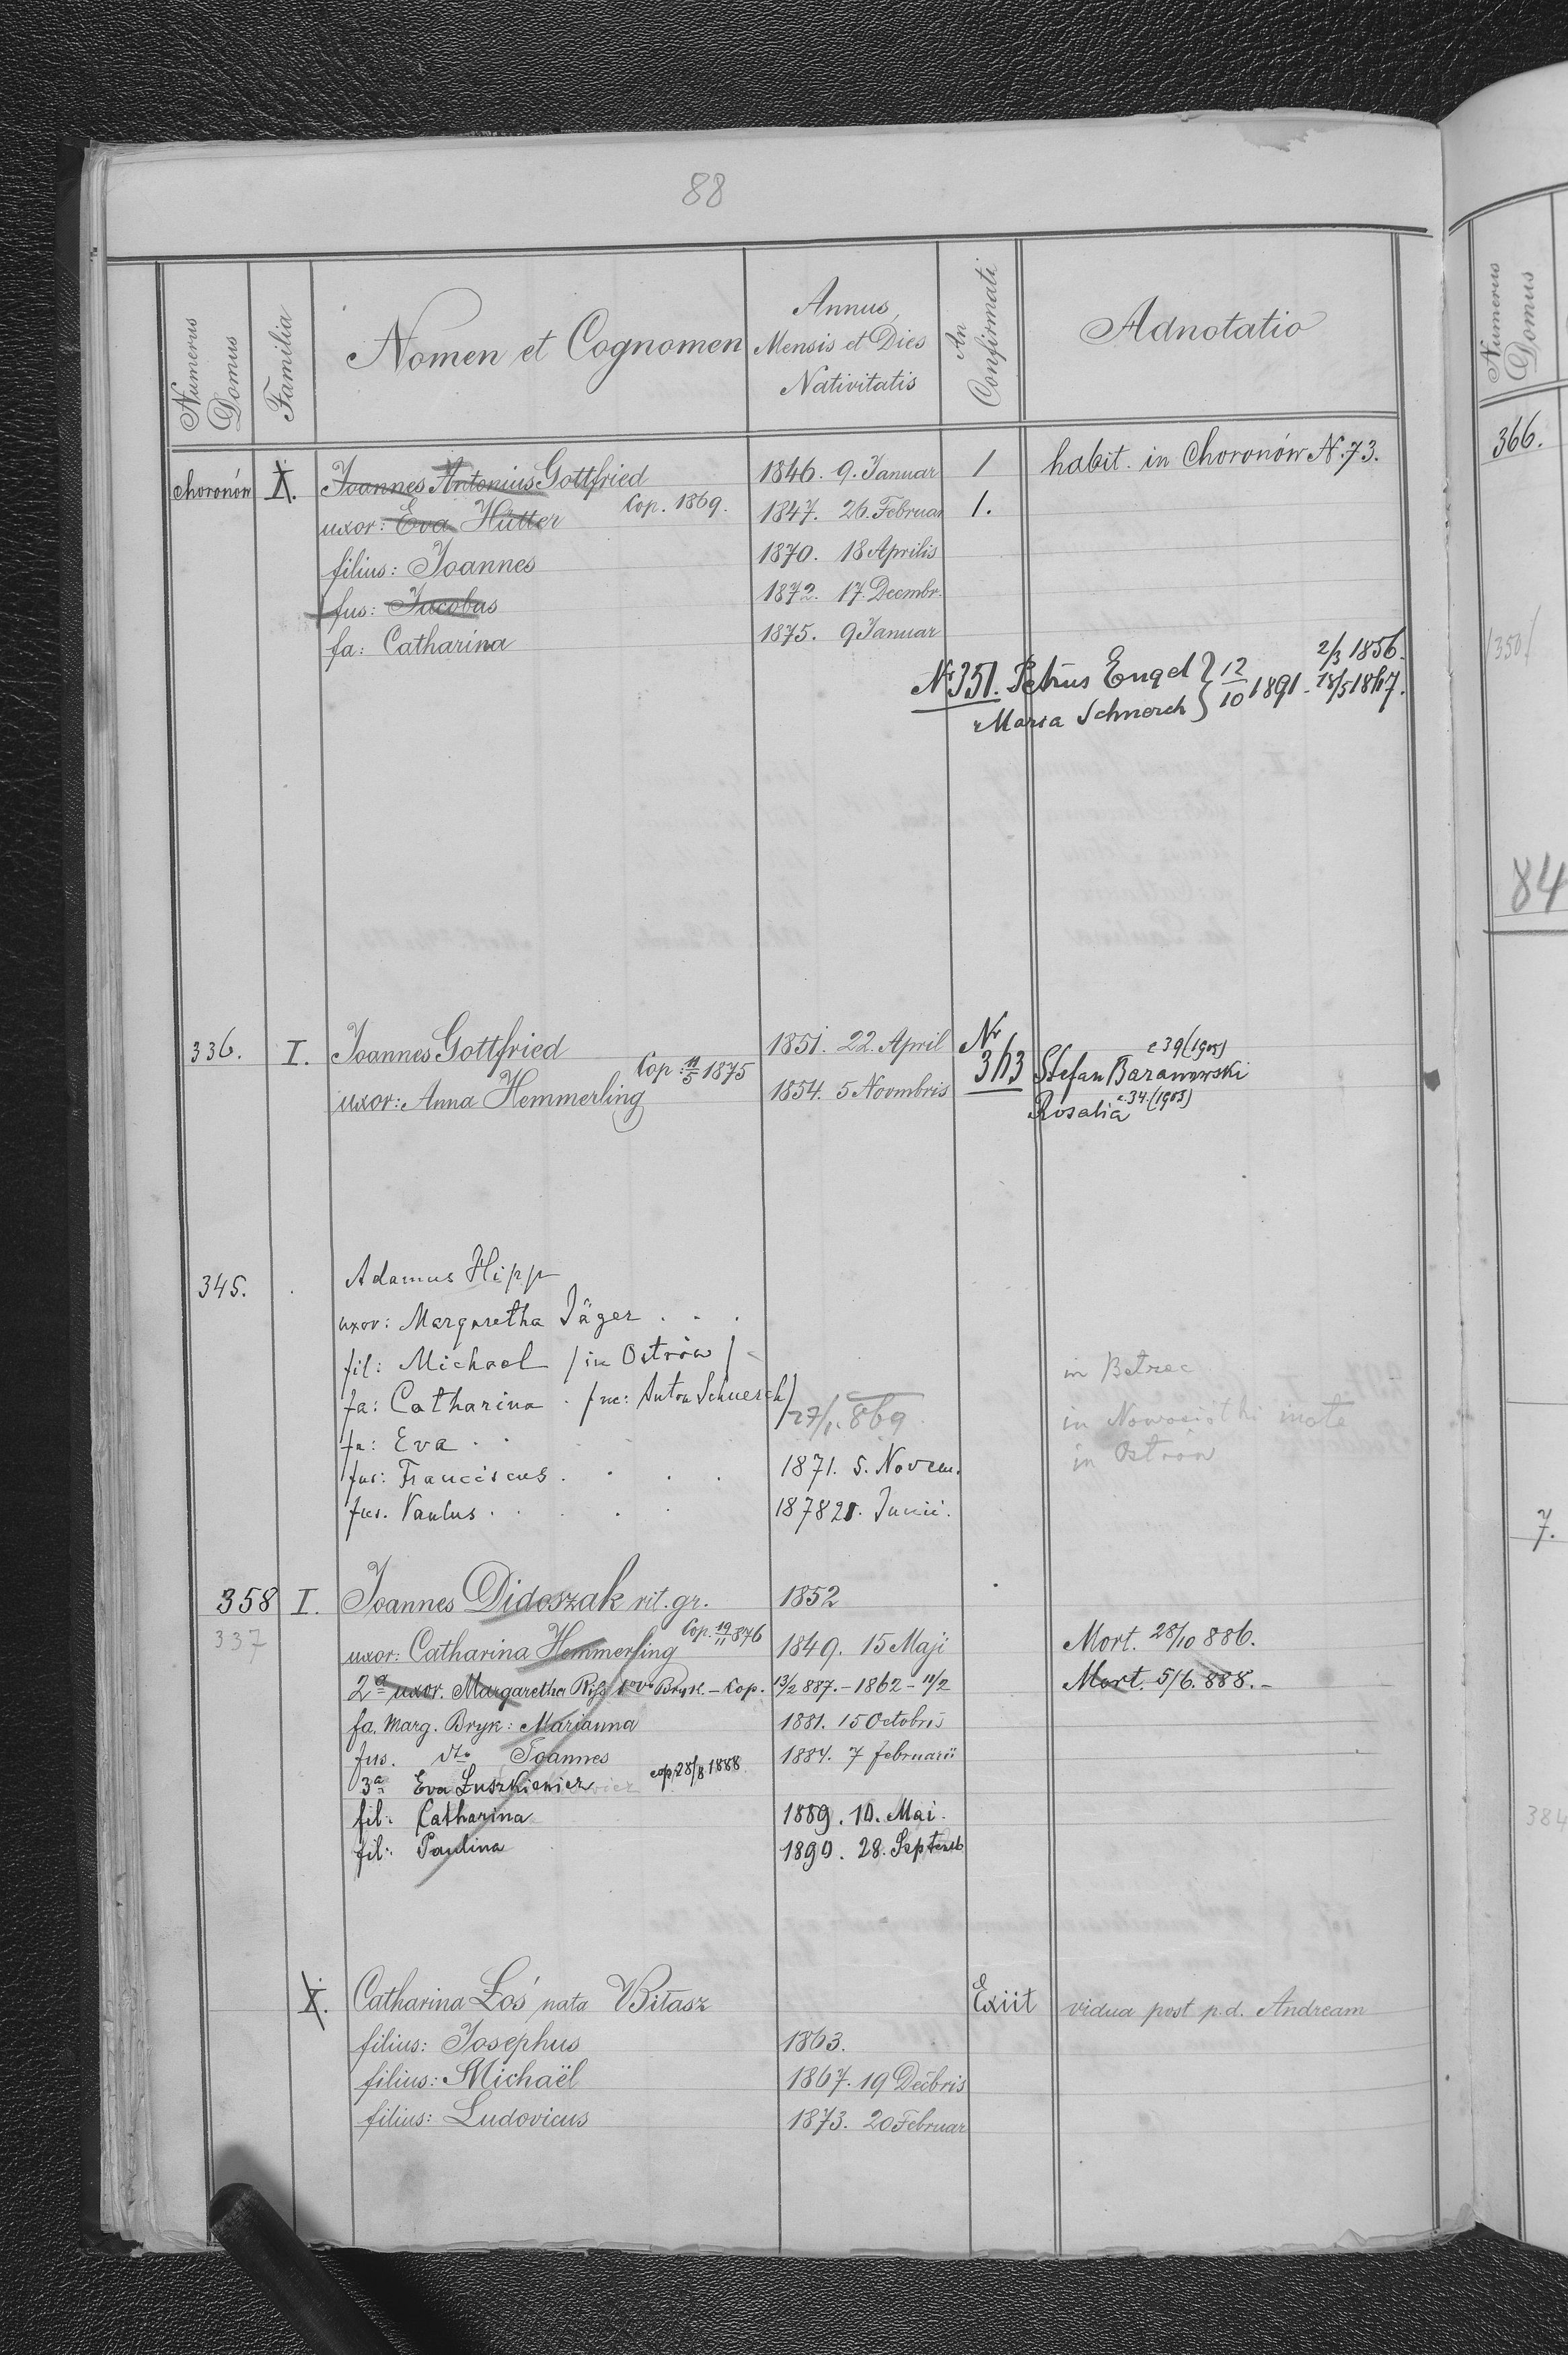 88
Numerus Domus Familia Nomen et Cognomen Annus, Mensis et Dies Nativitatis An Confirmati Adnotatio
Choronów I. Joannes Antonius Gottfried 1846. 9. Januar 1 habit. in Choronów N. 73.
uxor: Eva Hütter Cop. 1869. 1847. 26. Februar 1.
filius: Joannes 1870. 18 Aprilis
fus: Jacobus 1872. 17. Decmbr.
fa: Catharina 1875. 9 Januar
Nr 351. Petrus Engel } 12/10 1891 - 2/3 1856.
Maria Schnerch } 18/5 1867.
336. I. Joannes Gottfried 1851. 22. April Nr
Cop: 11/5 1875 363 Stefan Baranowski c 39 (1903)
uxor: Anna Hemmerling 1854. 5 Novmbris Rosalia c. 34. (1903)
345. Adamus Hipp
uxor: Margaretha Jäger . . .
fil: Michael / in Ostrów / in Betrec
fa: Catharina . / nc: Anton Schnerch / 27/1. 869 in
fa: Eva . . in Ostrów
fus: Franciscus . . . . 1871. 5. Novem.
fus. Paulus . . . . 1878 21. Junii.
358 I. Joannes Didoszak rit. gr. 1852
337 uxor: Catharina Hemmerling Cop. 19/11 876 1849. 15 Maji Mort. 28/10 886.
2a uxor. Margaretha 1o vo Bryk. - Cop. 13/2 887. - 1862 - 11/2 Mort. 5/6. 888. -
fa. Marg. Bryk: Marianna 1881. 15 Octobris
fus. dto Joannes 1884. 7 februarii
3a Eva Łuszkiewicz cop. 28/8 1888.
fil: Catharina 1889. 10. Mai.
fil: Paulina 1890. 28. Septemb
I. Catharina Łoś nata Bitasz Exiit vidua post p.d. Andream
filius: Josephus 1863.
filius: Michaël 1867. 19 Decbris
filius: Ludovicus 1873. 20 Februar
Numerus Domus
366.
350
84
7.
384